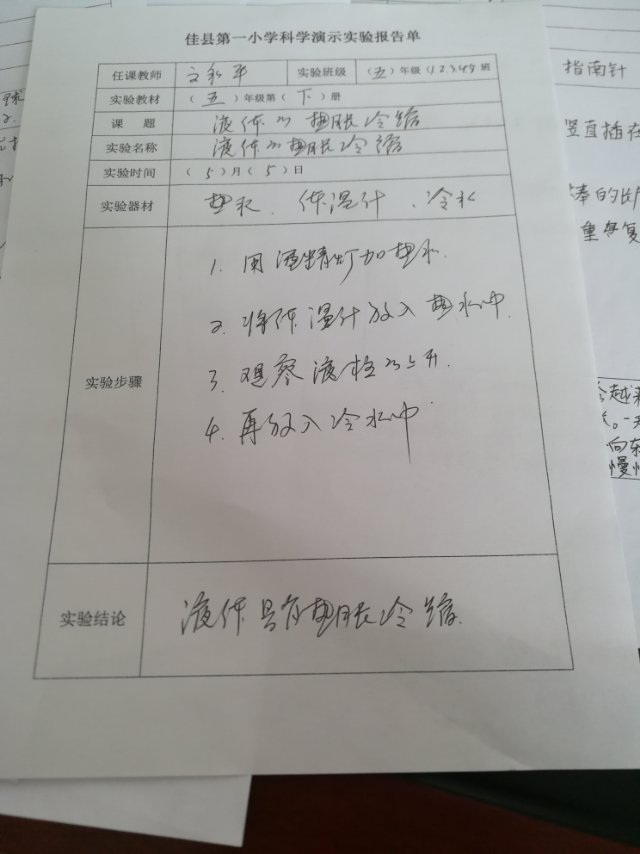 佳县第一小学科学演示实验报告单
任课教师 文和平 实验班级 (五)年级(12349班
实验教材 (五)年级第(下)册
课题 液体的热胀冷缩
实验名称 液体的热胀冷缩
实验时间 (5)月(5)日
实验器材 热水、体温计、冷水
实验步骤
1. 用酒精灯加热水.
2. 将体温计放入热水中.
3. 观察液柱的上升.
4. 再放入冷水中.
实验结论 液体具有热胀冷缩.
指南针
竖直插在
重复
向东